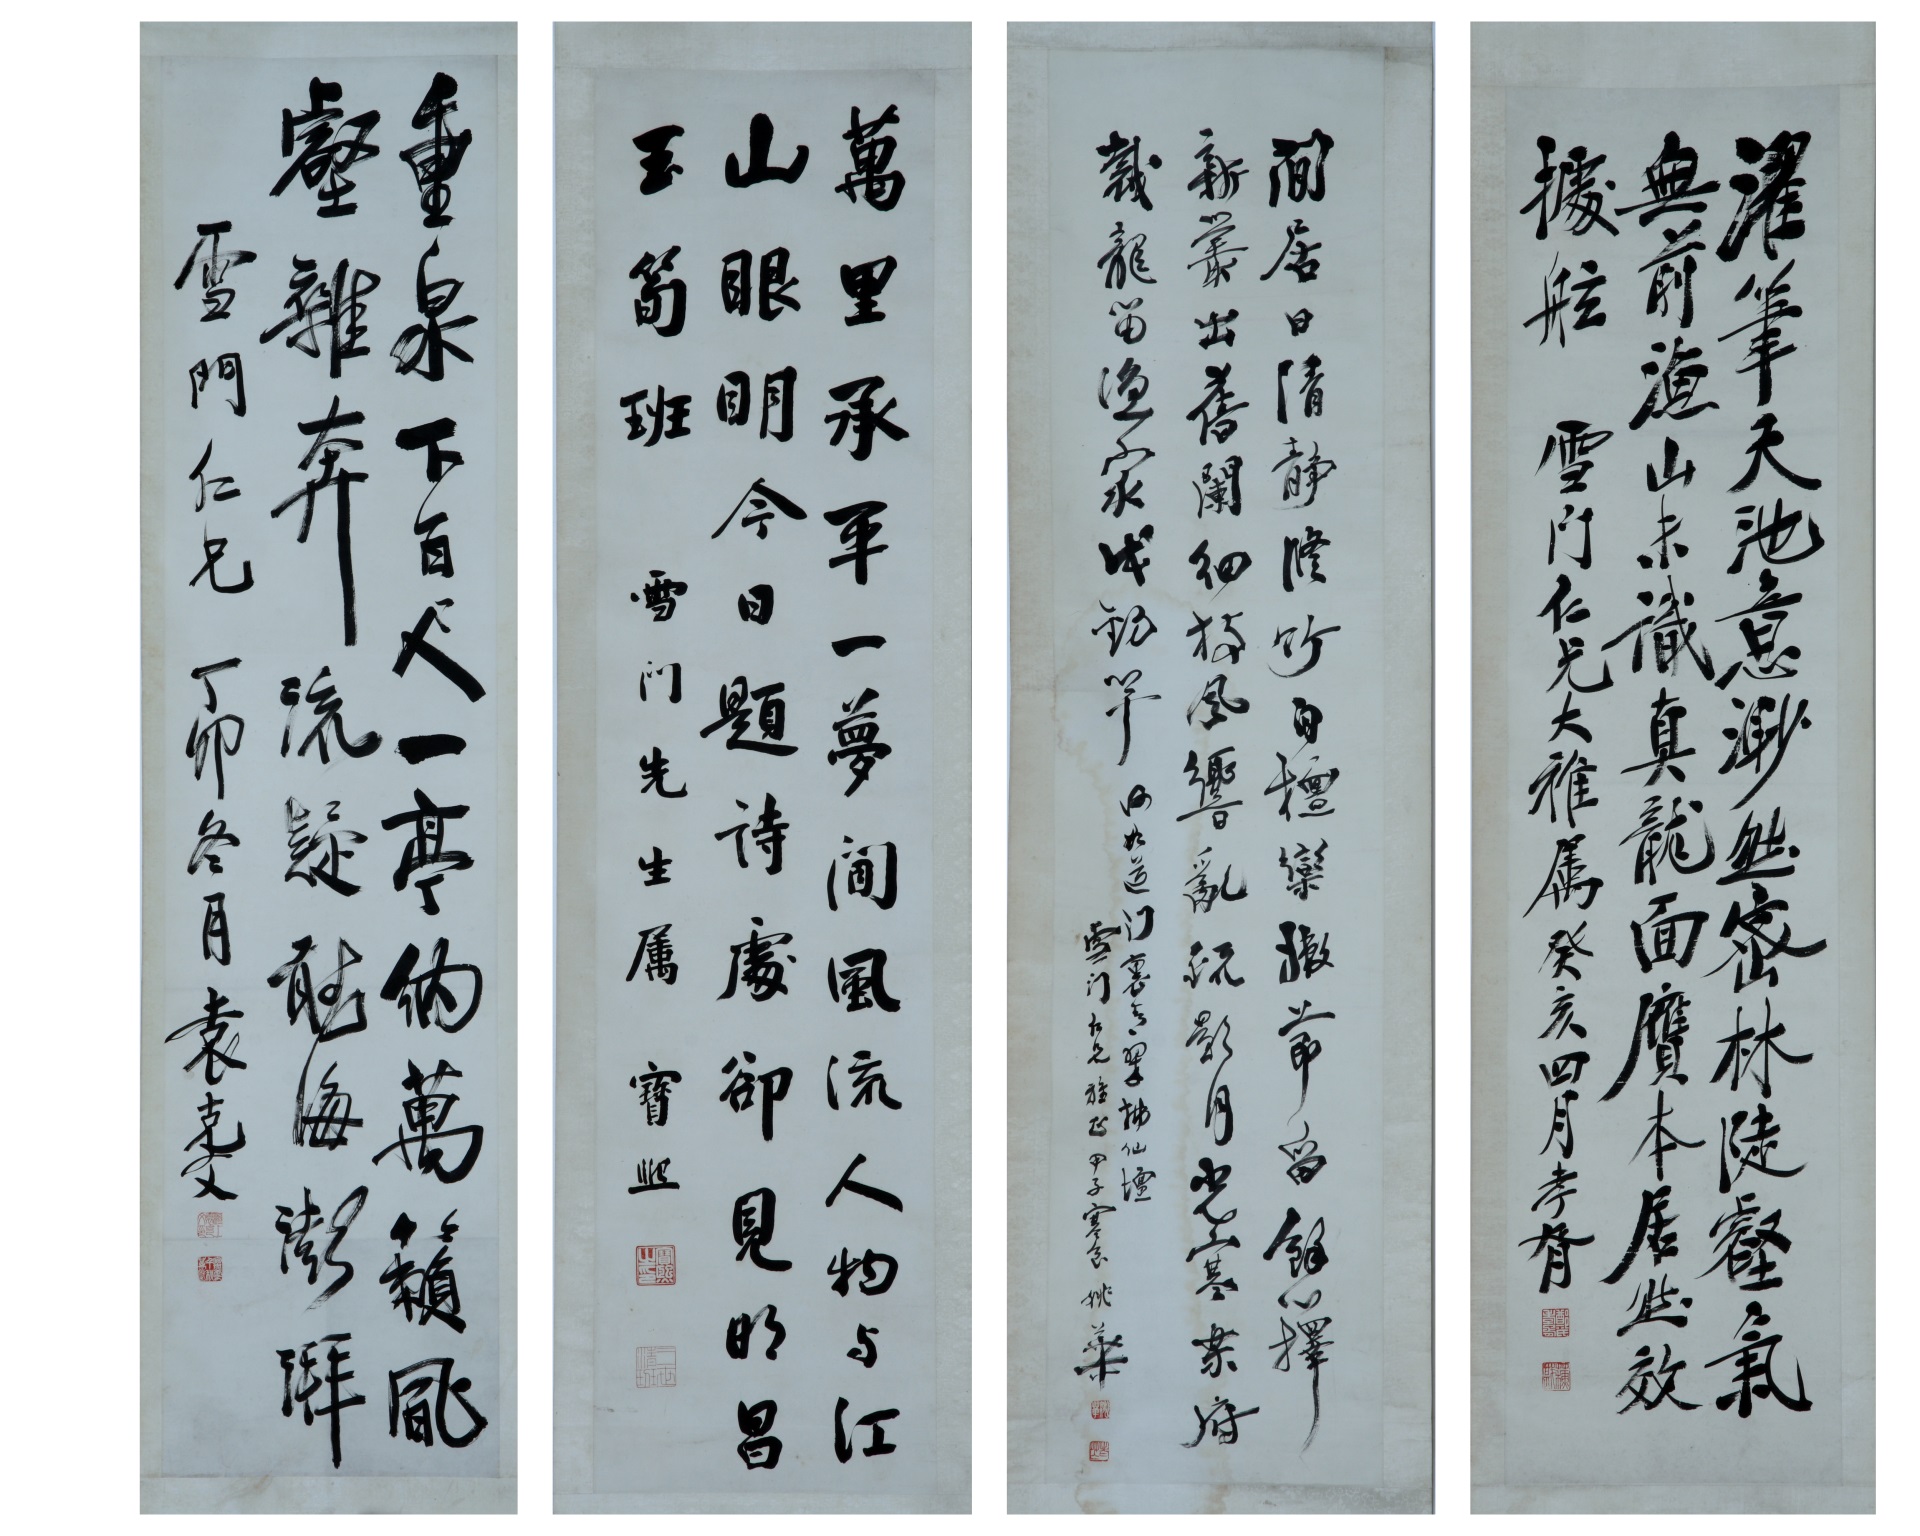 濯筆天池意渺然密林陡壑氣
無前漁山未識真龍面贋本居然效
據舷
雪門仁兄大雅属癸亥四月孝胥
閒居日清靜脩竹自檀欒嫩節留餘籜
新叢出舊闌細枝風響亂疏影月光寒樂府
裁龍笛漁家伐釣竿
何如道門裏青翠拂仙壇
雪門仁兄雅正甲子寒食姚華
萬里承平一夢間風流人物与江
山眼明今日題詩處卻見明昌
玉筍班
雪門先生属
寶熙
重泉下百尺一亭納萬籟風
壑雜奔流疑能海澎湃
雪門仁兄
丁卯冬月袁克文